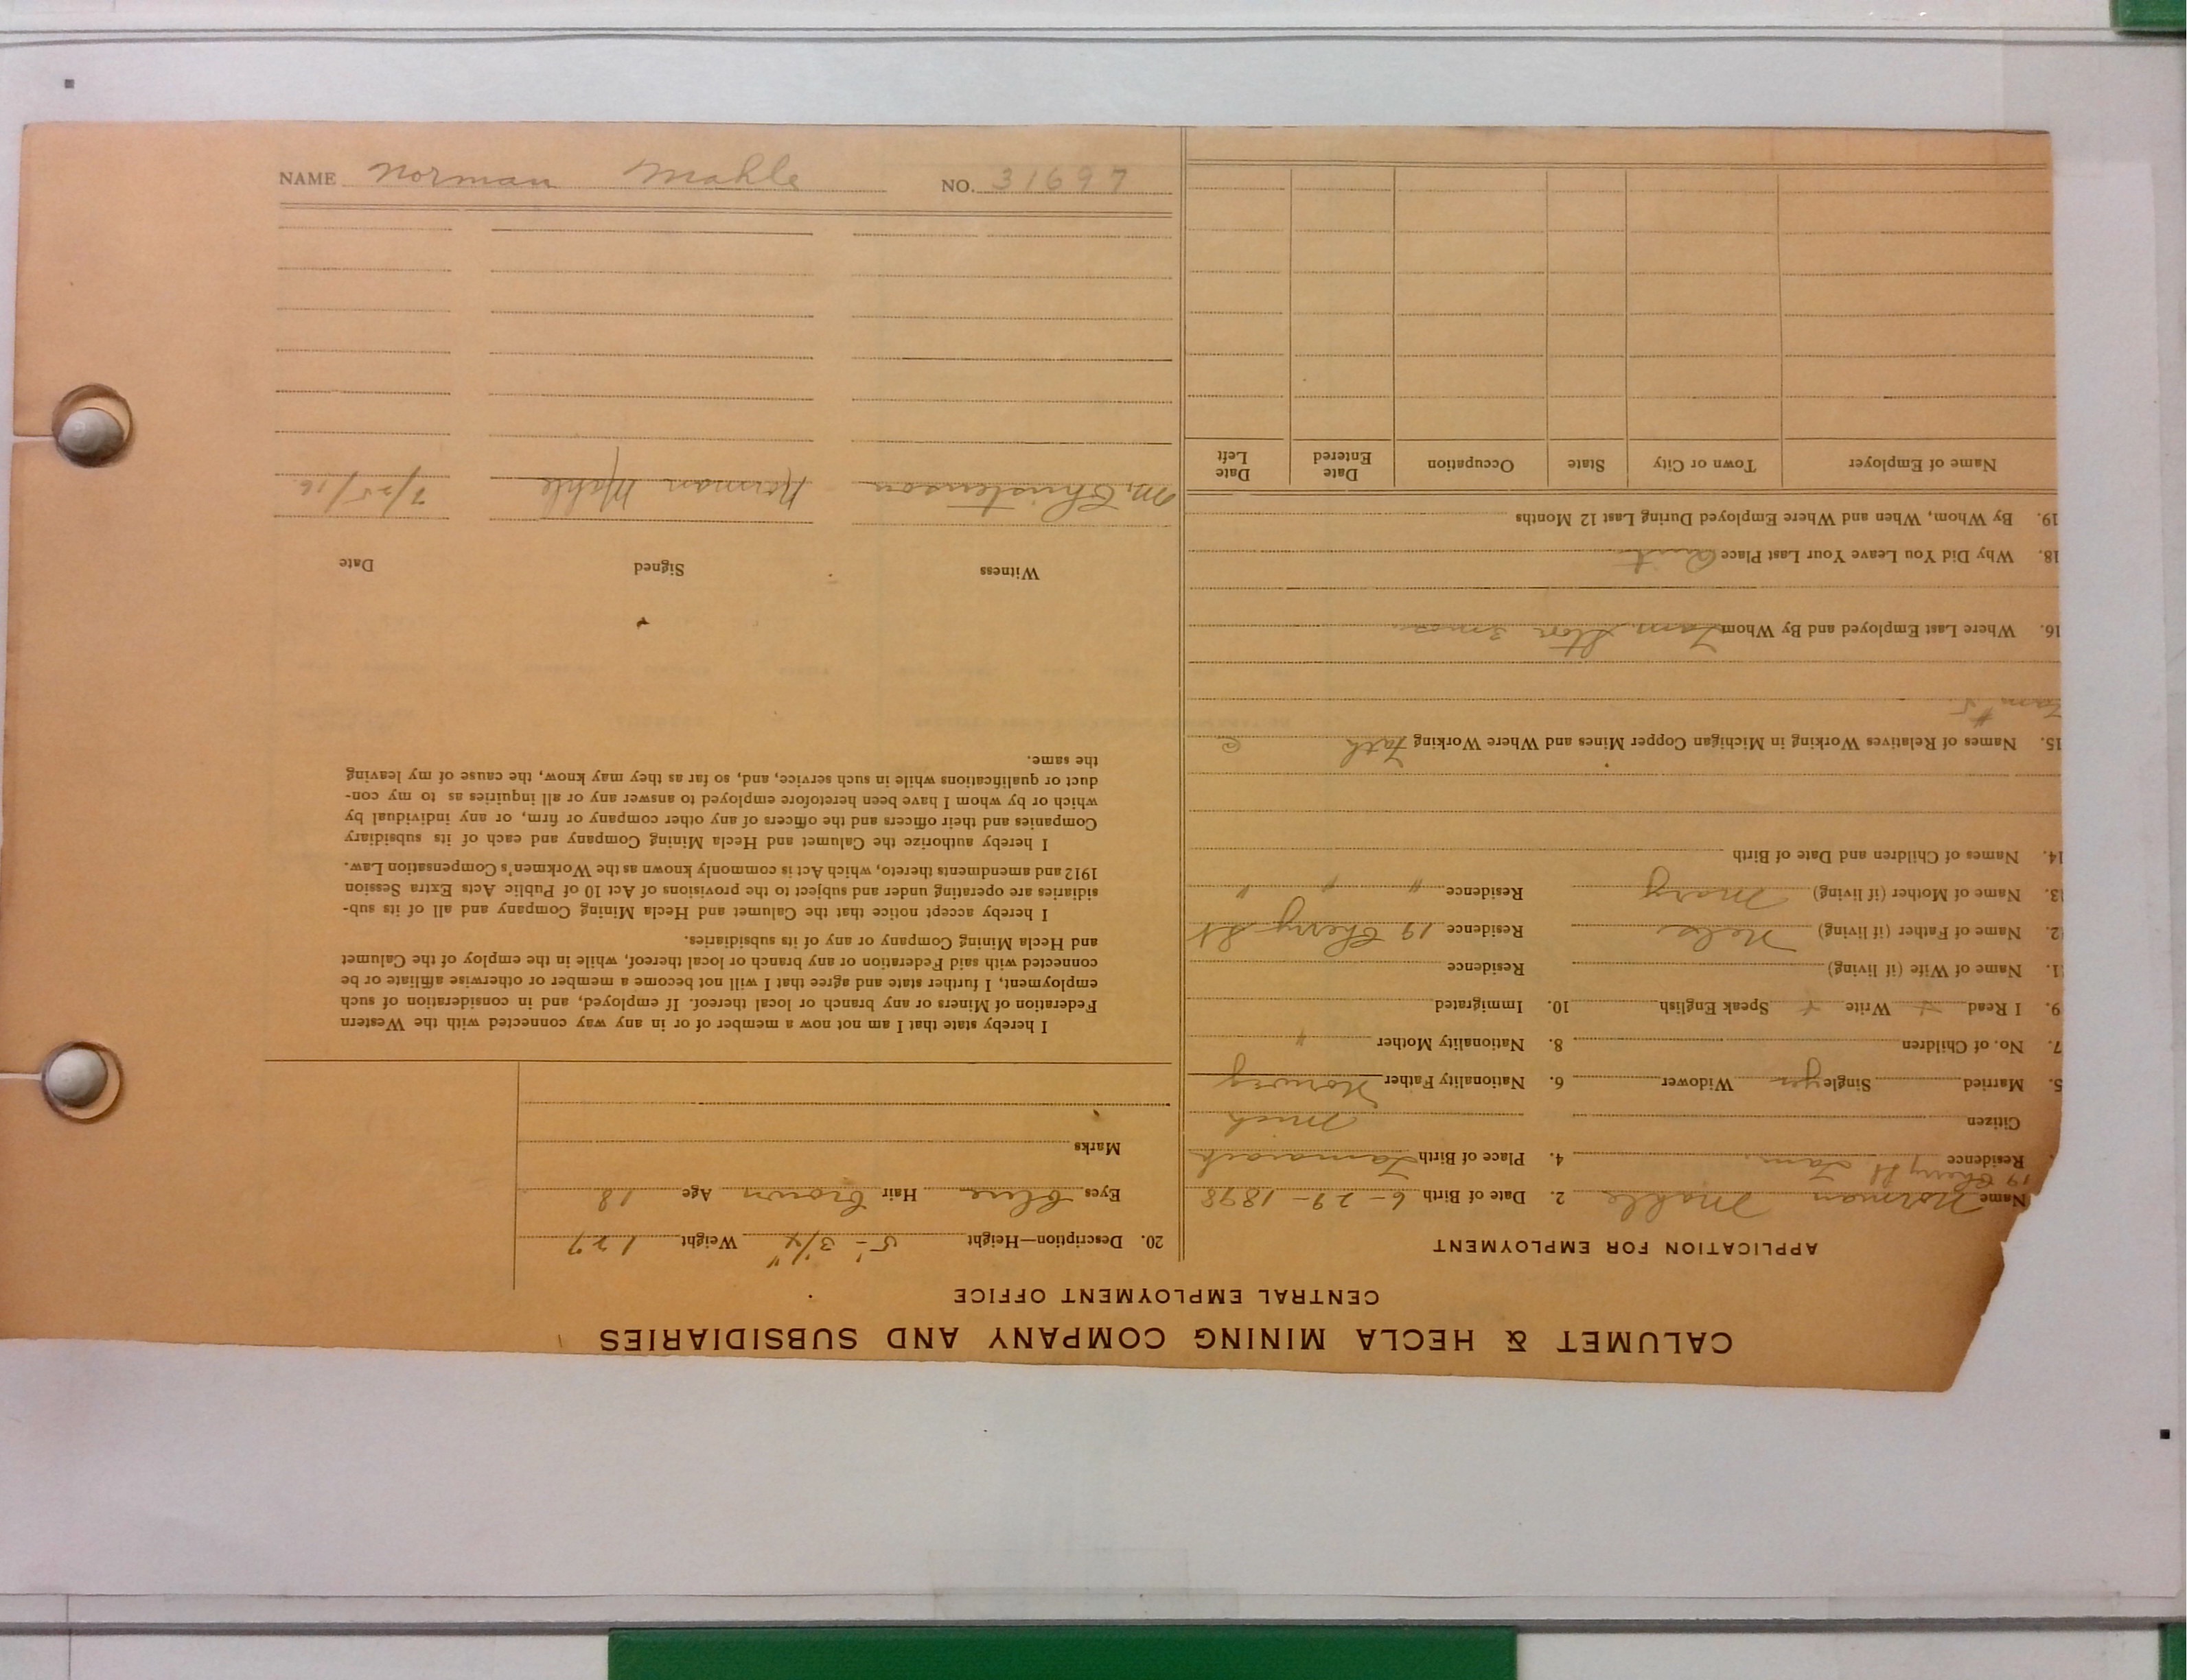 NAME Norman Mahle NO. 31697
CALUMET & HECLA MINING COMPANY AND SUBSIDIARIES
CENTRAL EMPLOYMENT OFFICE
APPLICATION FOR EMPLOYMENT
Name Norman Mahle 2. Date of Birth 6-29-1898
19 Cherry St Tam.
Residence 4. Place of Birth Tamarack
Citizen Mich
5. Married Single yes Widower 6. Nationality Father Norway
7. No. of Children 8. Nationality Mother "
9. I Read + Write + Speak English 10. Immigrated
11. Name of Wife (if living) Residence
2. Name of Father (if living) Nels Residence 19 Cherry St
3. Name of Mother (if living) Mary Residence " " "
14. Names of Children and Date of Birth
15. Names of Relatives Working in Michigan Copper Mines and Where Working Fath @
Tam #5
16. Where Last Employed and By Whom Tam. Stor
18. Why Did You Leave Your Last Place Quit
19. By Whom, When and Where Employed During Last 12 Months
Name of Employer Town or City State Occupation Date Entered Date Left
20. Description—Height 5'-3 1/4" Weight 127
Eyes blue Hair brown Age 18
Marks
I hereby state that I am not now a member of or in any way connected with the Western
Federation of Miners or any branch or local thereof. If employed, and in consideration of such
employment, I further state and agree that I will not become a member or otherwise affiliate or be
connected with said Federation or any branch or local thereof, while in the employ of the Calumet
and Hecla Mining Company or any of its subsidiaries.
I hereby accept notice that the Calumet and Hecla Mining Company and all of its sub-
sidiaries are operating under and subject to the provisions of Act 10 of Public Acts Extra Session
1912 and amendments thereto, which Act is commonly known as the Workmen's Compensation Law.
I hereby authorize the Calumet and Hecla Mining Company and each of its subsidiary
Companies and their officers and the officers of any other company or firm, or any individual by
which or by whom I have been heretofore employed to answer any or all inquiries as to my con-
duct or qualifications while in such service, and, so far as they may know, the cause of my leaving
the same.
Witness Signed Date
M. Christenson Norman Mahle 7/25/16